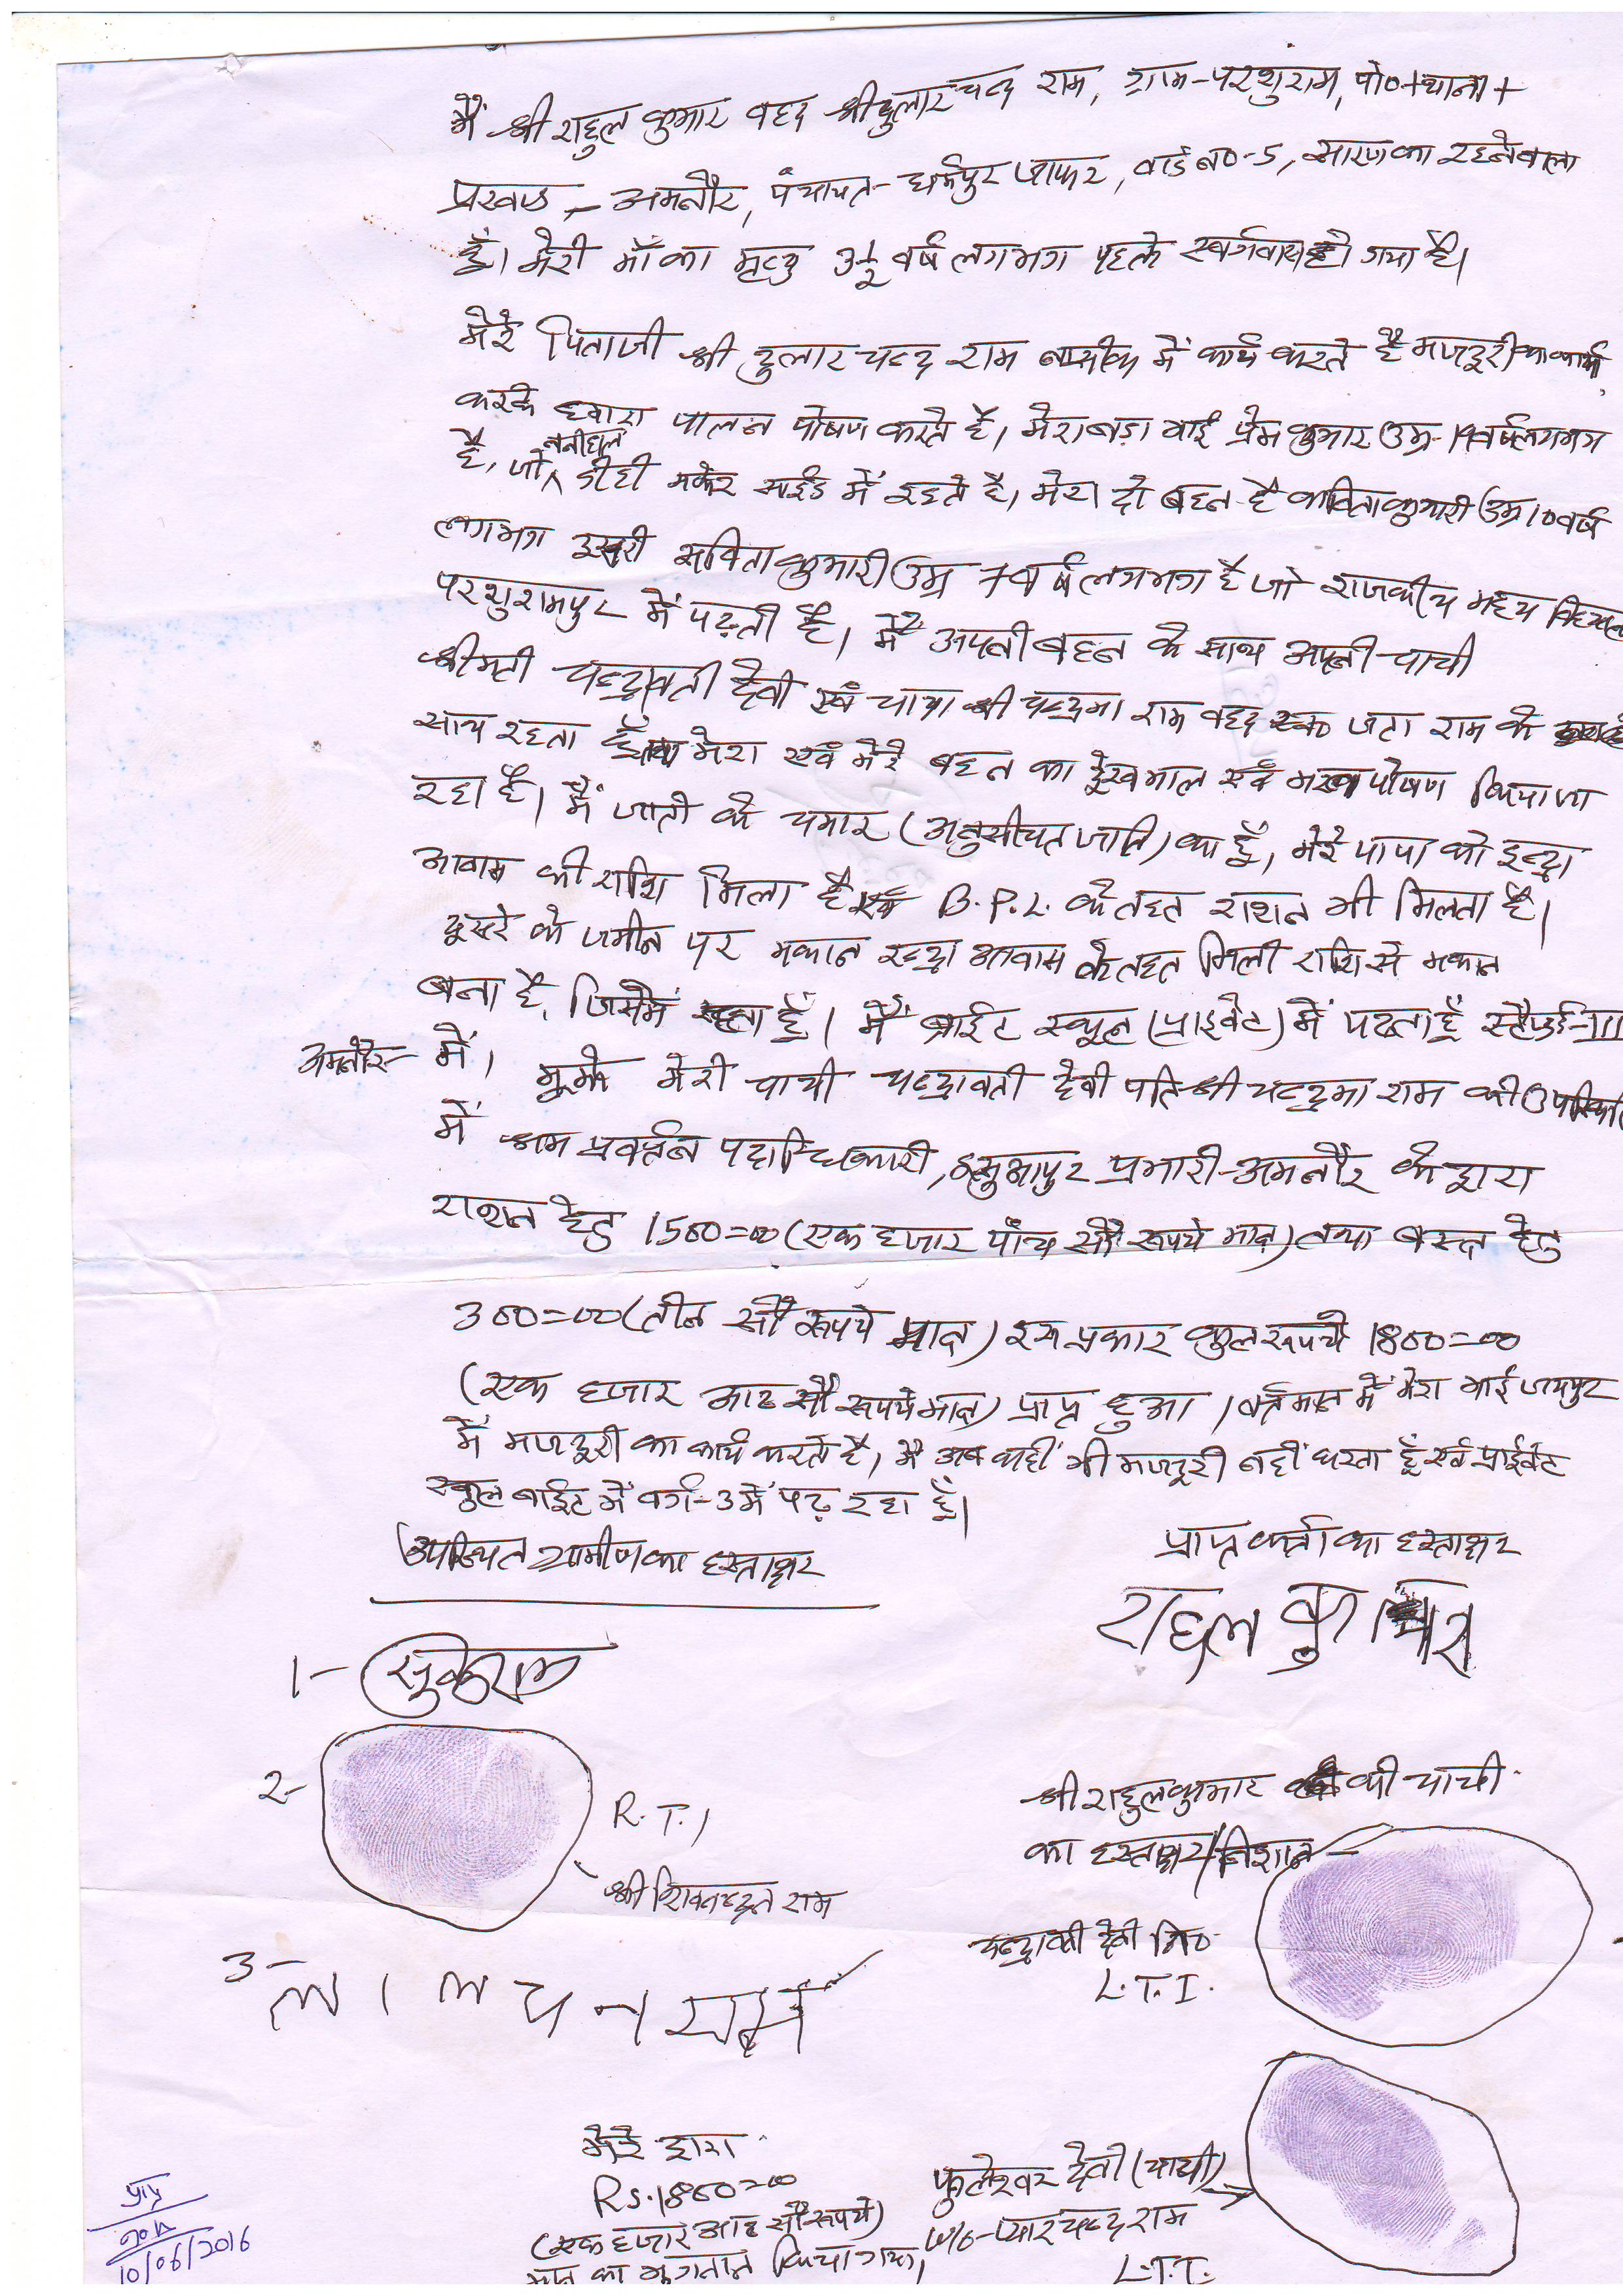 मैं श्री राहुल कुमार वल्द श्री दुलार चन्द्र राम, ग्राम-परशुराम, पो०+थाना+
प्रखण्ड - अमनौर, पंचायत-धर्मपुर जाफर, वार्ड न०-5, सारण का रहनेवाला
हूँ। मेरी माँ का मृत्यु 3½ वर्ष लगभग पहले स्वर्गवास हो गया है।
मेरे पिताजी श्री दुलार चन्द्र राम नासीक में कार्य करते है मजदूरी का कार्य
करके द्वारा पालन पोषण करते हैं। मेरा बड़ा भाई प्रेम कुमार उम्र-14 वर्ष लगभग
है, जो ननीहाल डीही मकेर साईड में रहते है। मेरा दो बहन है कविता कुमारी उम्र 10 वर्ष
लगभग दुसरी सविता कुमारी उम्र 7 वर्ष लगभग है जो राजकीय मध्य विद्यालय
परशुरामपुर में पढ़ती है। मैं अपनी बहन के साथ अपनी चाची
श्रीमती चन्द्रावती देवी एवं चाचा श्री चन्द्रमा राम वल्द स्व० जटा राम के
साथ रहता हूँ मेरा एवं मेरे बहन का देखभाल एवं भरण पोषण किया जा
रहा है। मैं जाती के चमार (अनुसूचित जाति) का हूँ, मेरे पापा को इन्द्रा
आवास की राशि मिला है एवं B.P.L. के तहत राशन भी मिलता है।
दुसरे के जमीन पर मकान इन्द्रा आवास के तहत मिली राशि से मकान
बना है, जिसमें रहता हूँ। मैं ब्राईट स्कूल (प्राइवेट) में पढता हूँ स्टैण्डर्ड-III
अमनौर- में। मुझे मेरी चाची चन्द्रावती देवी पति-श्री चन्द्रमा राम की उपस्थिति
में श्रम प्रवर्त्तन पदाधिकारी, इसुआपुर प्रभारी-अमनौर के द्वारा
राशन हेतु 1500=00 (एक हजार पाँच सौ रूपये मात्र) तथा बस्त्र हेतु
300=00 (तीन सौ रूपये मात्र) इस प्रकार कुल रूपये 1800=00
(एक हजार आठ सौ रूपये मात्र) प्राप्त हुआ। वर्त्तमान में मेरा भाई जयपुर
में मजदूरी का कार्य करते है, मै अब कहीं भी मजदूरी नहीं करता हूँ एवं प्राईवेट
स्कुल ब्राईट में वर्ग-3 में पढ़ रहा हूँ।
उपस्थित ग्रामीण का हस्ताक्षर
प्राप्त कर्त्ता का हस्ताक्षर
राहुल कुमार
1-
2-
R.T.I
श्री शिवनन्दन राम
श्री राहुल कुमार की चाची
का हस्ताक्षर/निशान
चन्द्रावती देवी नि०
L.T.I.
3- लालचन राम
मेरे द्वारा
Rs.1800=00
(एक हजार आठ सौ रूपये)
मात्र का भुगतान किया गया।
फुलेश्वर देवी (चाची)
w/o-प्यार चन्द्र राम
L.T.I.
10/06/2016